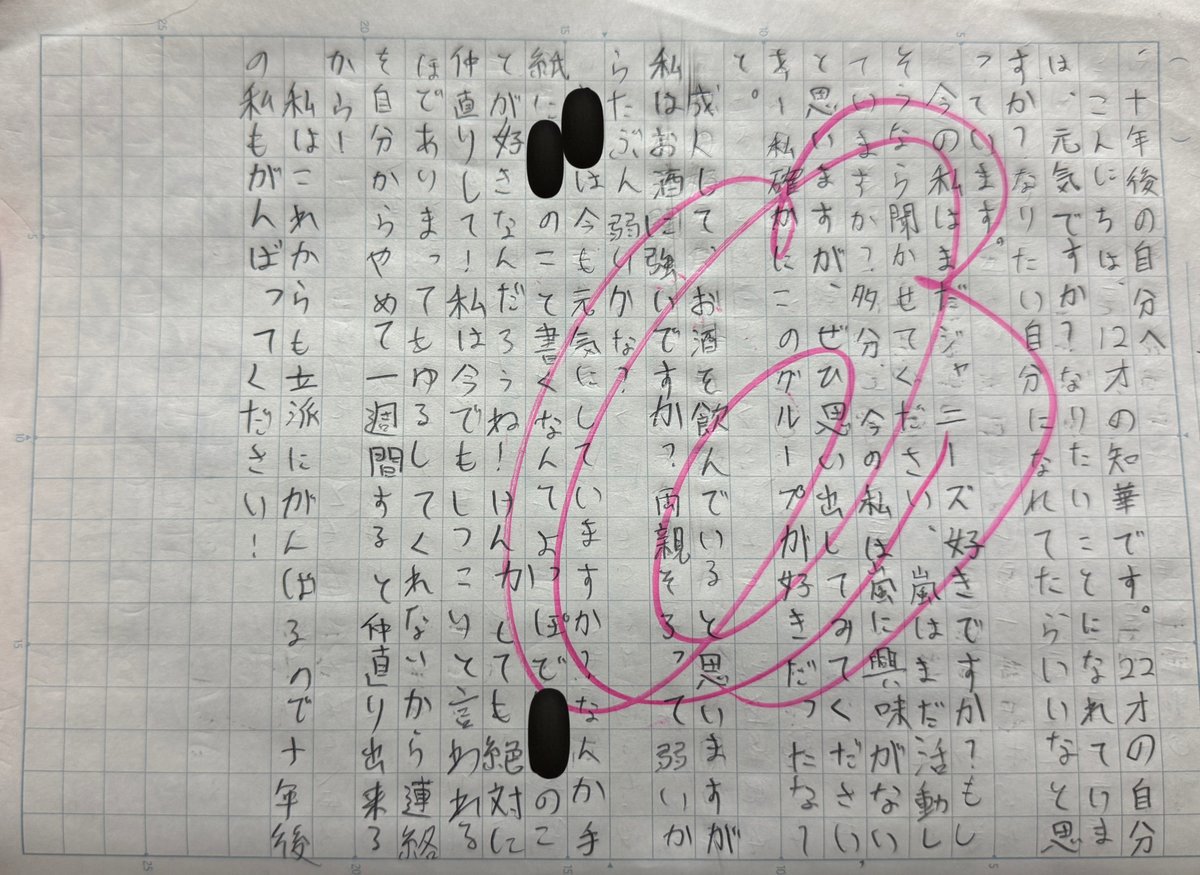 十年後の自分へ
こんにちは、12才の知華です。22才の自分
は、元気ですか?なりたいことになれていま
すか?なりたい自分になれてたらいいなと思
っています。
今の私はまだジャニーズ好きですか?もし
そうなら聞かせてください、嵐はまだ活動し
ていますか?多分、今の私は嵐に興味がない
と思いますが、ぜひ思い出してみてください、
あー私確かにこのグループが好きだったなて
と。
成人して、お酒を飲んでいると思いますが
私はお酒に強いですか?両親そろって弱いか
らたぶん弱いかな?
は今も元気にしていますか?なんか手
紙に のこと書くなんてよっぽで のこ
とが好きなんだろうね!けんかしても絶対に
仲直りして!私は今でもしつこいと言われる
ほであやまってもゆるしてくれないから連絡
を自分からやめて一週間すると仲直り出来る
からー
私はこれからも立派にがんばるので十年後
の私もがんばってください!